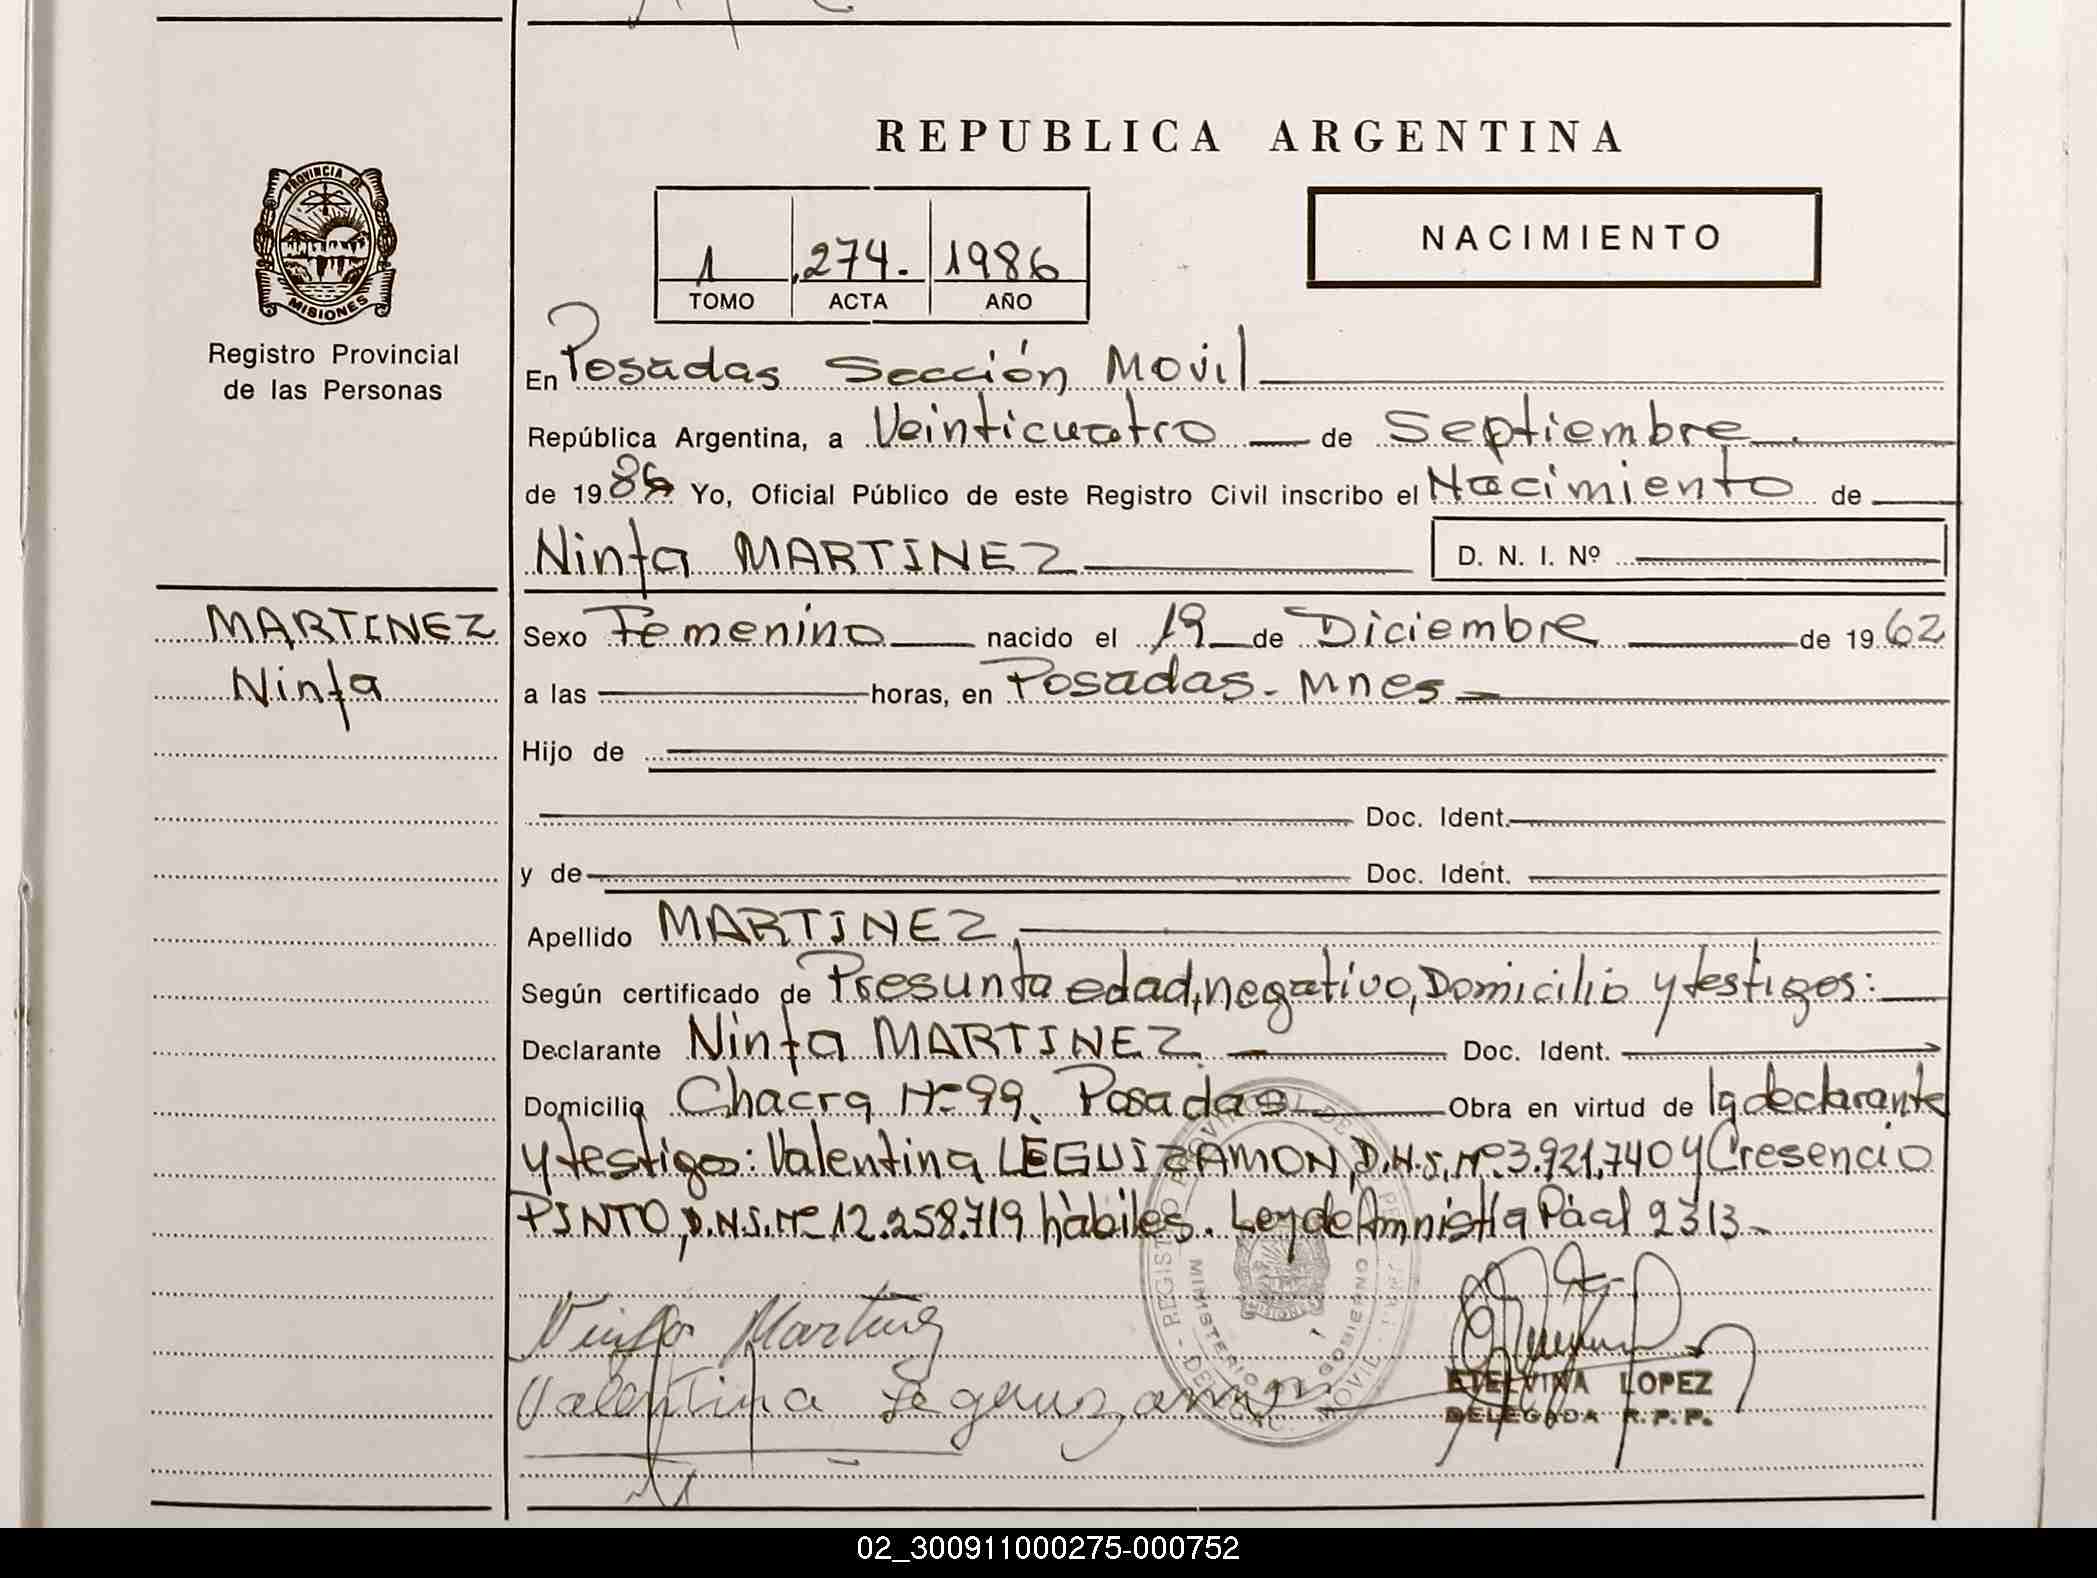 REPUBLICA ARGENTINA
PROVINCIA DE
MISIONES
Registro Provincial
de las Personas
1 274. 1986
TOMO ACTA AÑO
NACIMIENTO
En Posadas Sección Movil
República Argentina, a Veinticuatro de Septiembre
de 1986 Yo, Oficial Público de este Registro Civil inscribo el Nacimiento de
Ninfa MARTINEZ D. N. I. Nº
MARTINEZ
Ninfa
Sexo Femenino nacido el 19 de Diciembre de 1962
a las horas, en Posadas - Mnes
Hijo de
Doc. Ident.
y de Doc. Ident.
Apellido MARTINEZ
Según certificado de Presunta edad, negativo, Domicilio y testigos:
Declarante Ninfa MARTINEZ Doc. Ident.
Domicilio Chacra Nº 99. Posadas Obra en virtud de la declarante
y testigos: Valentina LEGUIZAMON, D.N.I. Nº 3.921.740 y Cresencio
PINTO, D.N.I. Nº 12.258.719 hàbiles. Ley de Amnistía Pcial 2313 -
Ninfa Martinez
Valentina Leguizamon
ETELVINA LOPEZ
DELEGADA R.P.P.
02_300911000275-000752